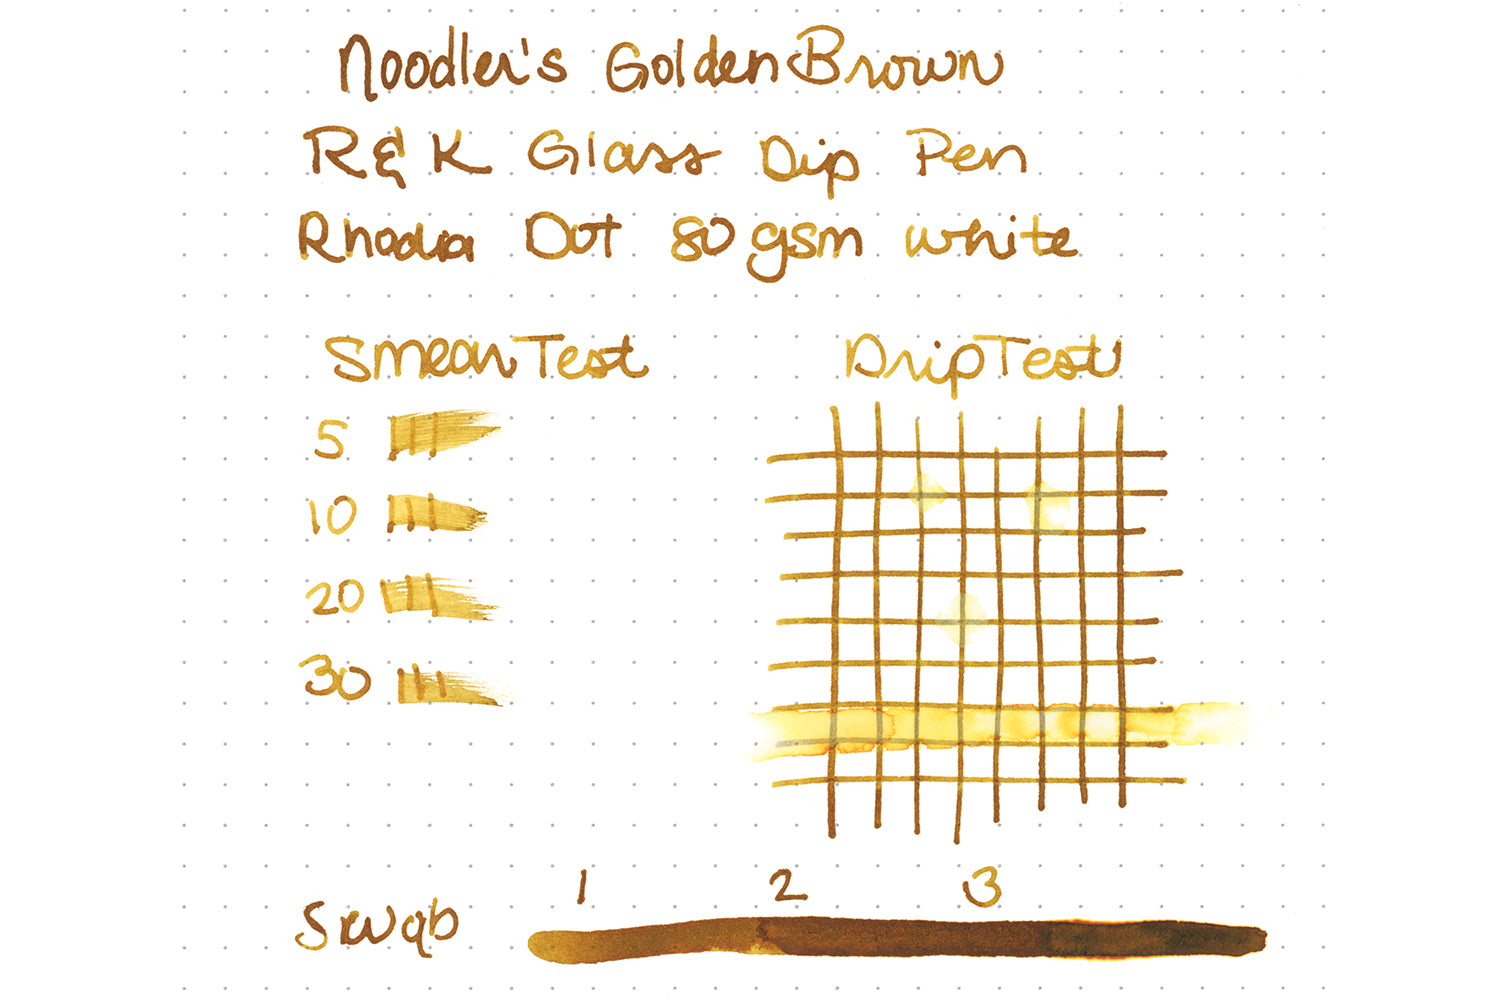 Noodler's Golden Brown
R & K Glass Dip Pen
Rhodia Dot 80 gsm white
Smear Test
Drip Test
5
10
20
30
1 2 3
Swab